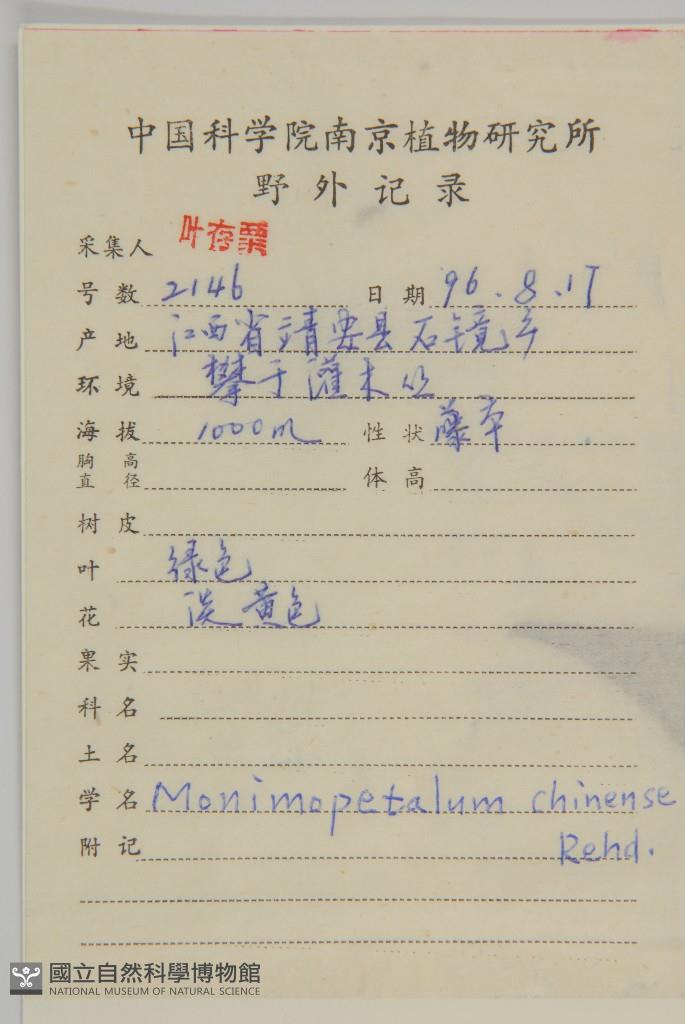 中国科学院南京植物研究所
野外记录
采集人 叶存粟
号数 2146 日期 96.8.17
产地 江西省靖安县石镜乡
环境 攀于灌木丛
海拔 1000m 性状 藤本
胸高直径 体高
树皮
叶 绿色
花 淡黄色
果实
科名
土名
学名 Monimopetalum chinense
Rehd.
附记
國立自然科學博物館
NATIONAL MUSEUM OF NATURAL SCIENCE